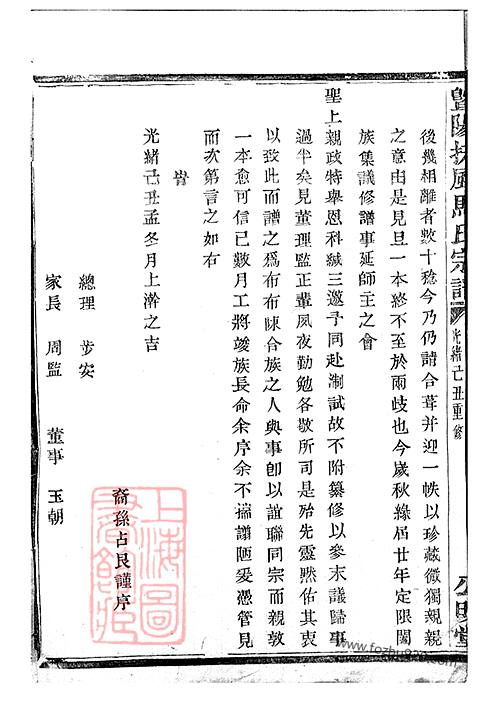 暨陽扶風馬氏宗譜
光緒己丑重修
後幾相離者數十稔今乃仍請合葺并迎一帙以珍藏微獨親親
之意由是見且一本終不至於兩歧也今歲秋緣屆廿年定限闔
族集議修譜事延師主之會
聖上親政特舉恩科緘三邀予同赴淛試故不附纂修以參末議歸事
過半矣見董理監正輩夙夜勤勉各敬所司是殆先靈黙佑其衷
以致此而譜之爲布布陳合族之人與事卽以誼聯同宗而親敦
一本愈可信已數月工將竣族長命余序余不揣譾陋爰憑管見
而次第言之如右
旹
光緒己丑孟冬月上澣之吉
裔孫占艮謹序
總理 步安
家長 周監 董事 玉朝
上海圖書館藏
www.fozhu920.com